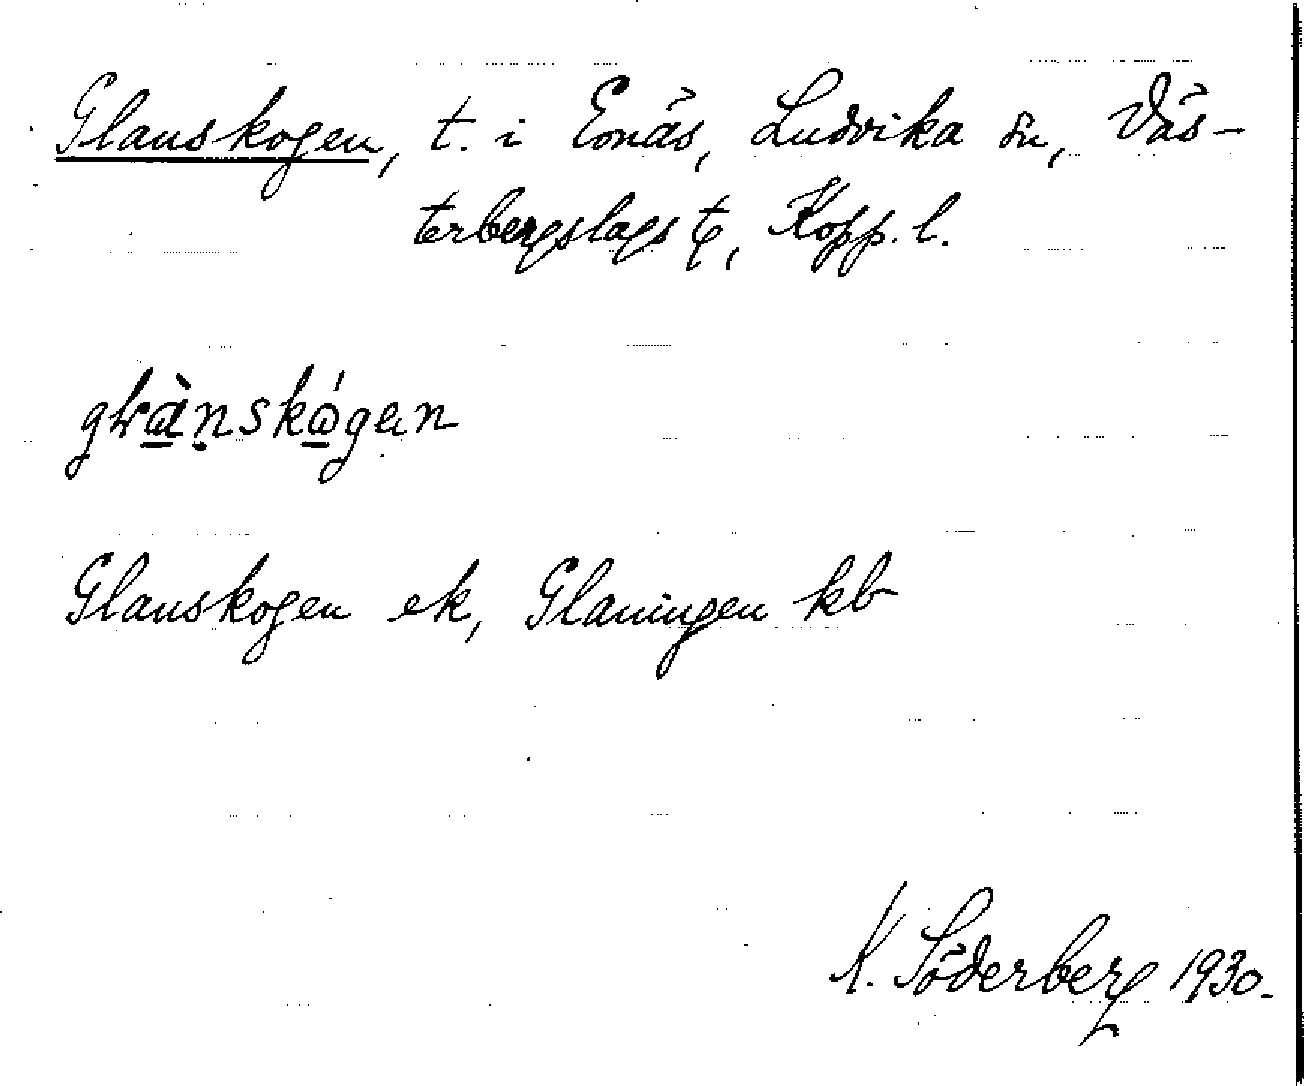 Glanskogen, t. i Eonäs, Ludvika sn, Väs-
terbergslags tg, Kopp. l.
Glanskogen ek, Glaningen kb
K. Söderberg 1930.